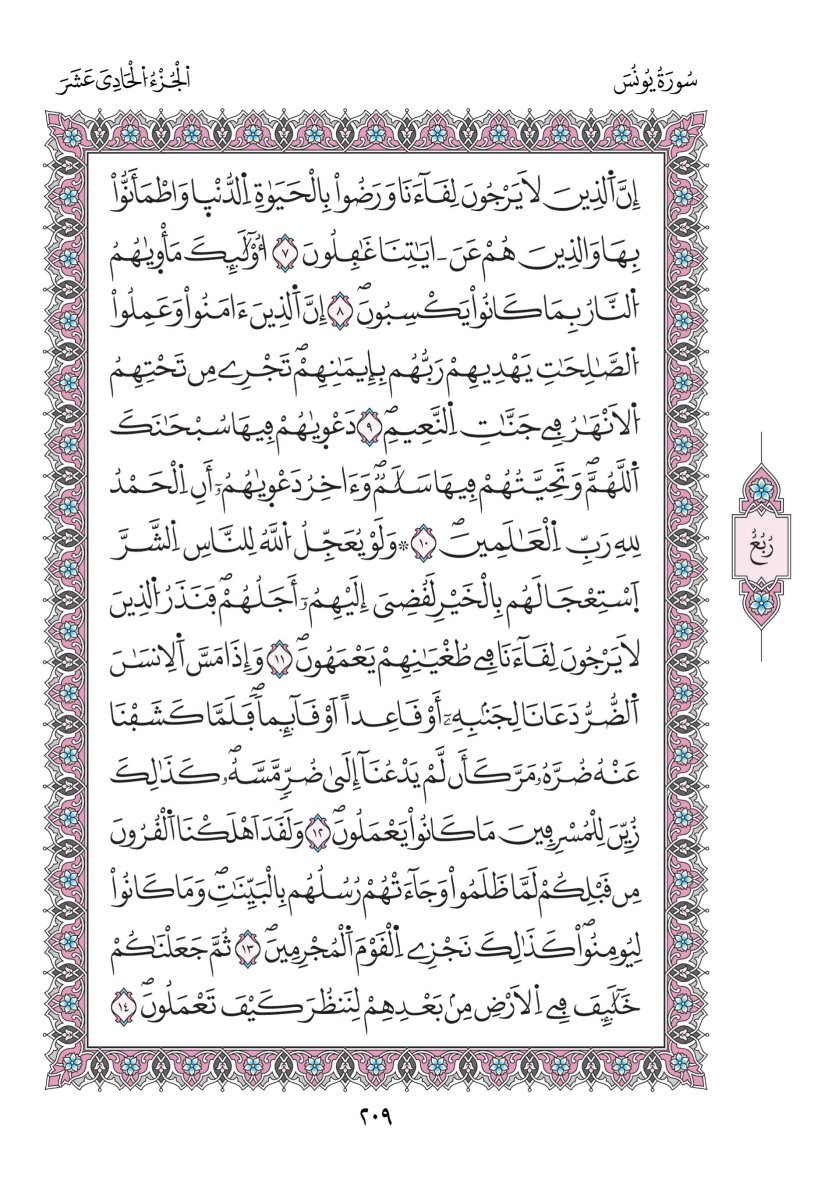 سُورَةُ يُونُسَ
اَ۬لْجُزْءُ اُ۬لْحَادِيَ عَشَرَ
إِنَّ اَ۬لذِينَ لَا يَرْجُونَ لِقَآءَنَا وَرَضُواْ بِالْحَيَوٰةِ اِ۬لدُّنْي۪ا وَاطْمَأَنُّواْ
بِهَا وَالذِينَ هُمْ عَنَ ـ ايَٰتِنَا غَٰفِلُونَ ٧ أُوْلَٰٓئِكَ مَأْو۪يٰهُمُ
اُ۬لنَّارُ بِمَا كَانُواْ يَكْسِبُونَۖ ٨ إِنَّ اَ۬لذِينَ ءَامَنُواْ وَعَمِلُواْ
اُ۬لصَّٰلِحَٰتِ يَهْدِيهِمْ رَبُّهُم بِإِيمَٰنِهِمْۖ تَجْرِے مِن تَحْتِهِمُ
اُ۬لَانْهَٰرُ فِے جَنَّٰتِ اِ۬لنَّعِيمِۖ ٩ دَعْو۪يٰهُمْ فِيهَا سُبْحَٰنَكَ
اَ۬للَّهُمَّۖ وَتَحِيَّتُهُمْ فِيهَا سَلَٰمٞۖ وَءَاخِرُ دَعْو۪يٰهُمُۥٓ أَنِ اِ۬لْحَمْدُ
لِلهِ رَبِّ اِ۬لْعَٰلَمِينَۖ ١٠ ۞ وَلَوْ يُعَجِّلُ اُ۬للَّهُ لِلنَّاسِ اِ۬لشَّرَّ
اَ۪سْتِعْجَالَهُم بِالْخَيْرِ لَقُضِيَ إِلَيْهِمُۥٓ أَجَلُهُمْۖ فَنَذَرُ اُ۬لذِينَ
لَا يَرْجُونَ لِقَآءَنَا فِے طُغْيَٰنِهِمْ يَعْمَهُونَۖ ١١ وَإِذَا مَسَّ اَ۬لِانسَٰنَ
اَ۬لضُّرُّ دَعَانَا لِجَنۢبِهِۦٓ أَوْ قَاعِداً اَوْ قَآئِماٗۖ فَلَمَّا كَشَفْنَا
عَنْهُ ضُرَّهُۥ مَرَّ كَأَن لَّمْ يَدْعُنَآ إِلَىٰ ضُرّٖ مَّسَّهُۥۖ كَذَٰلِكَ
زُيِّنَ لِلْمُسْرِفِينَ مَا كَانُواْ يَعْمَلُونَۖ ١٢ وَلَقَدَ اَهْلَكْنَا اَ۬لْقُرُونَ
مِن قَبْلِكُمْ لَمَّا ظَلَمُواْ وَجَآءَتْهُمْ رُسُلُهُم بِالْبَيِّنَٰتِۖ وَمَا كَانُواْ
لِيُومِنُواْۖ كَذَٰلِكَ نَجْزِے اِ۬لْقَوْمَ اَ۬لْمُجْرِمِينَۖ ١٣ ثُمَّ جَعَلْنَٰكُمْ
خَلَٰٓئِفَ فِے اِ۬لَارْضِ مِنۢ بَعْدِهِمْ لِنَنظُرَ كَيْفَ تَعْمَلُونَۖ ١٤
رُبُعُ
٢٠٩